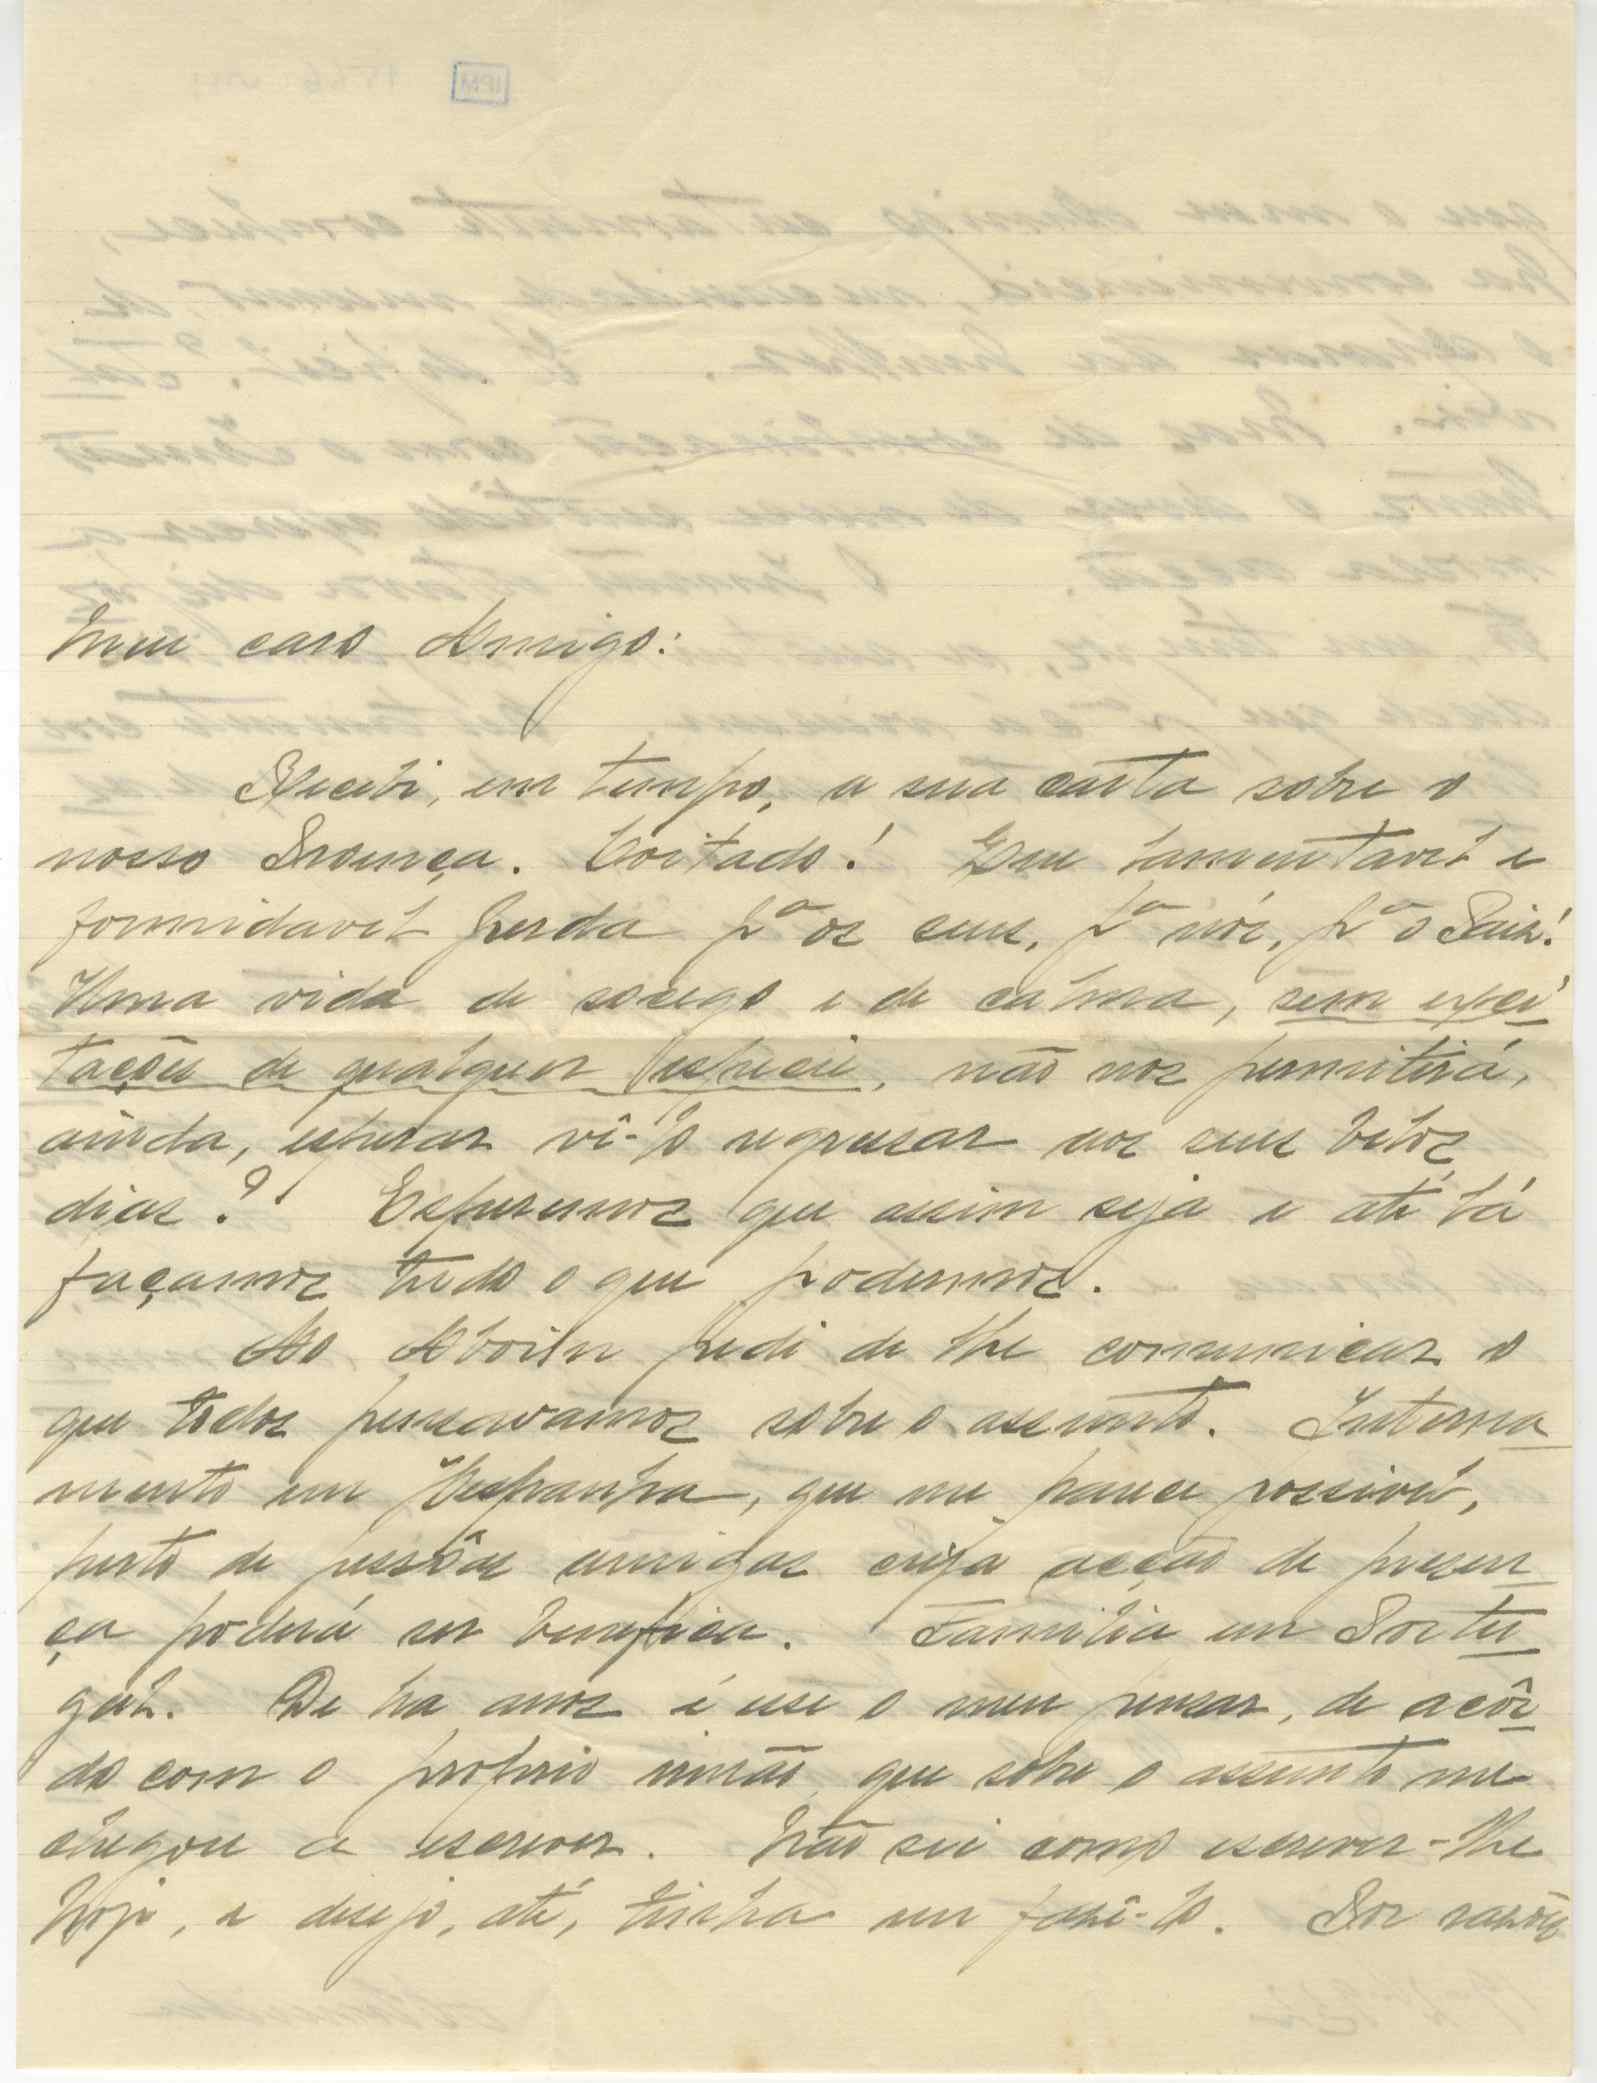 Meu caro Amigo:
Recebi, em tempo, a sua carta sobre o
nosso Proença. Coitado! Que lamentavel e
formidavel perda pª os seus, pª nós, pª o Paiz!
Uma vida de socego e de calma, sem exci
tações de qualquer especie, não nos permitirá,
ainda, esperar vê-lo regressar aos seus belos
dias? Esperemos que assim seja e até lá
façamos tudo o que podermos.
Ao Aboim pedi de lhe comunicar o
que todos pensavamos sobre o assunto. Interna
mento em Hespanha, que me parece possivel,
perto de pessôas amigas cuja acção de presen
ça poderá ser benefica. Familia em Portu
gal. De ha anos é esse o meu pensar, de acôr
do com o proprio irmão que sobre o assunto me
chegou a escrever. Não sei como escrever-lhe
hoje, e desejo, até, tinha em fazê-lo. Por razões